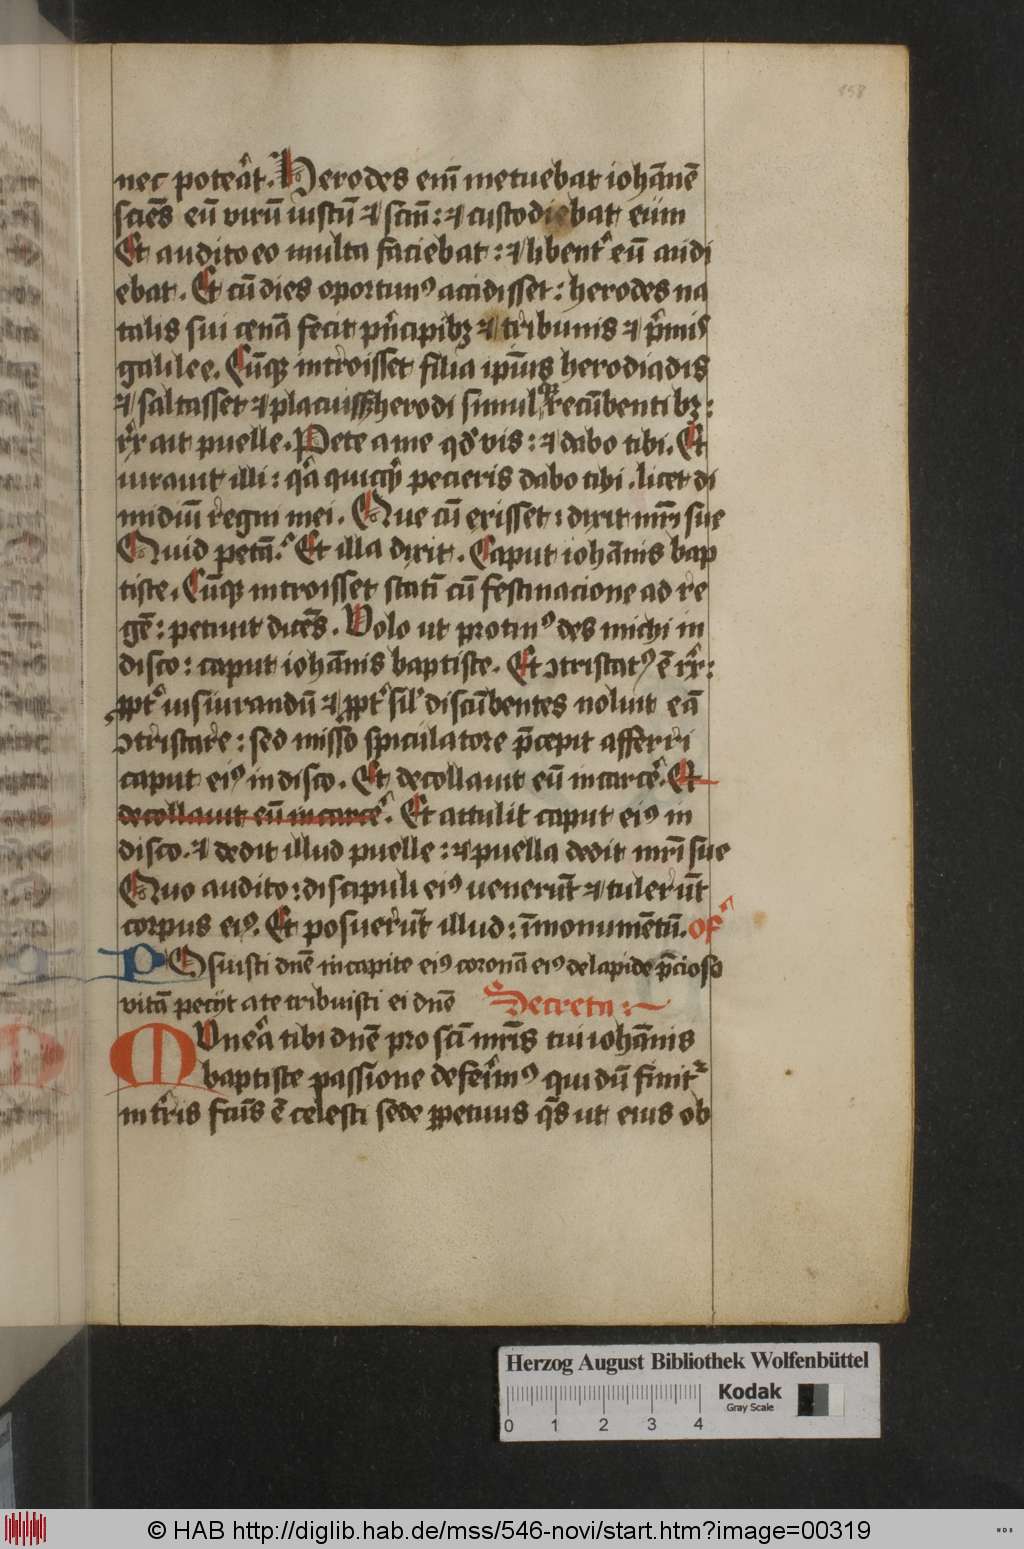 158
nec poteāt. Herodes enī metuebat iohānē
sciēs eū virū iustū ⁊ scm̄: ⁊ custodiebat eum
Et audito eo multa faciebat: ⁊ libent᷑ eū audi
ebat. Et cū dies oportunꝰ accidisset: herodes na
talis sui cenā fecit pn̄cipibꝫ ⁊ tribunis ⁊ p̄mis
galilee. Cūqꝫ introisset filia ipīus herodiadis
⁊ saltasset ⁊ placuissꝫ herodi simulqꝫ recūbentibꝫ:
rex ait puelle. Pete a me qd̄ vis: ⁊ dabo tibi. Et
iurauit illi: qͣ quicqͥd pecieris dabo tibi. licet di
midiū regni mei. Que cū exisset: dixit mr̄i sue
Quid petā. Et illa dixit. Caput iohānis bap
tiste. Cūqꝫ introisset statī cū festinacione ad re
gē: petiuit dicēs. Volo ut protinꝰ des michi in
disco: caput iohānis baptiste. Et ꝯtristatꝰ ē rex:
ꝓpt᷑ iusiurandū ⁊ ꝓpt᷑ sil̓ discūbentes noluit eā
ꝯtristare: sed misso spiculatore p̄cepit afferri
caput eiꝰ in disco. Et decollauit eū in carcē. Et
decollauit eū in carcē. Et attulit caput eiꝰ in
disco. ⁊ dedit illud puelle: ⁊ puella dedit mr̄i sue
Quo audito: discipuli eiꝰ venerūt ⁊ tulerūt
corpus eiꝰ. Et posuerūt illud: ī monumētū. of̄
POsuisti dn̄e in capite eiꝰ coronā eiꝰ de lapide p̄cioso
vitā pecijt a te tribuisti ei dn̄e Secreta:
MUneā tibi dn̄e pro sc̄i mr̄is tui iohānis
baptiste passione deferimꝰ qui dū finit᷑
in tr̄is fc̄us ē celesti sede ꝑpetuus qs̄ ut eius ob
Herzog August Bibliothek Wolfenbüttel
Kodak
Gray Scale
0 1 2 3 4
© HAB http://diglib.hab.de/mss/546-novi/start.htm?image=00319